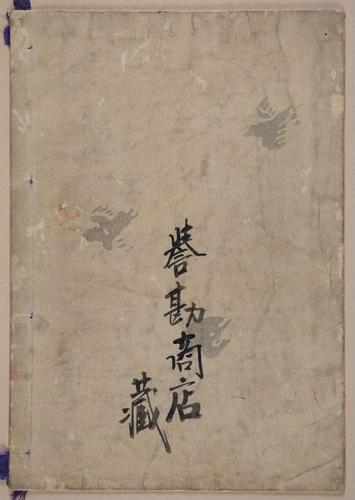 誉勘商店
藏